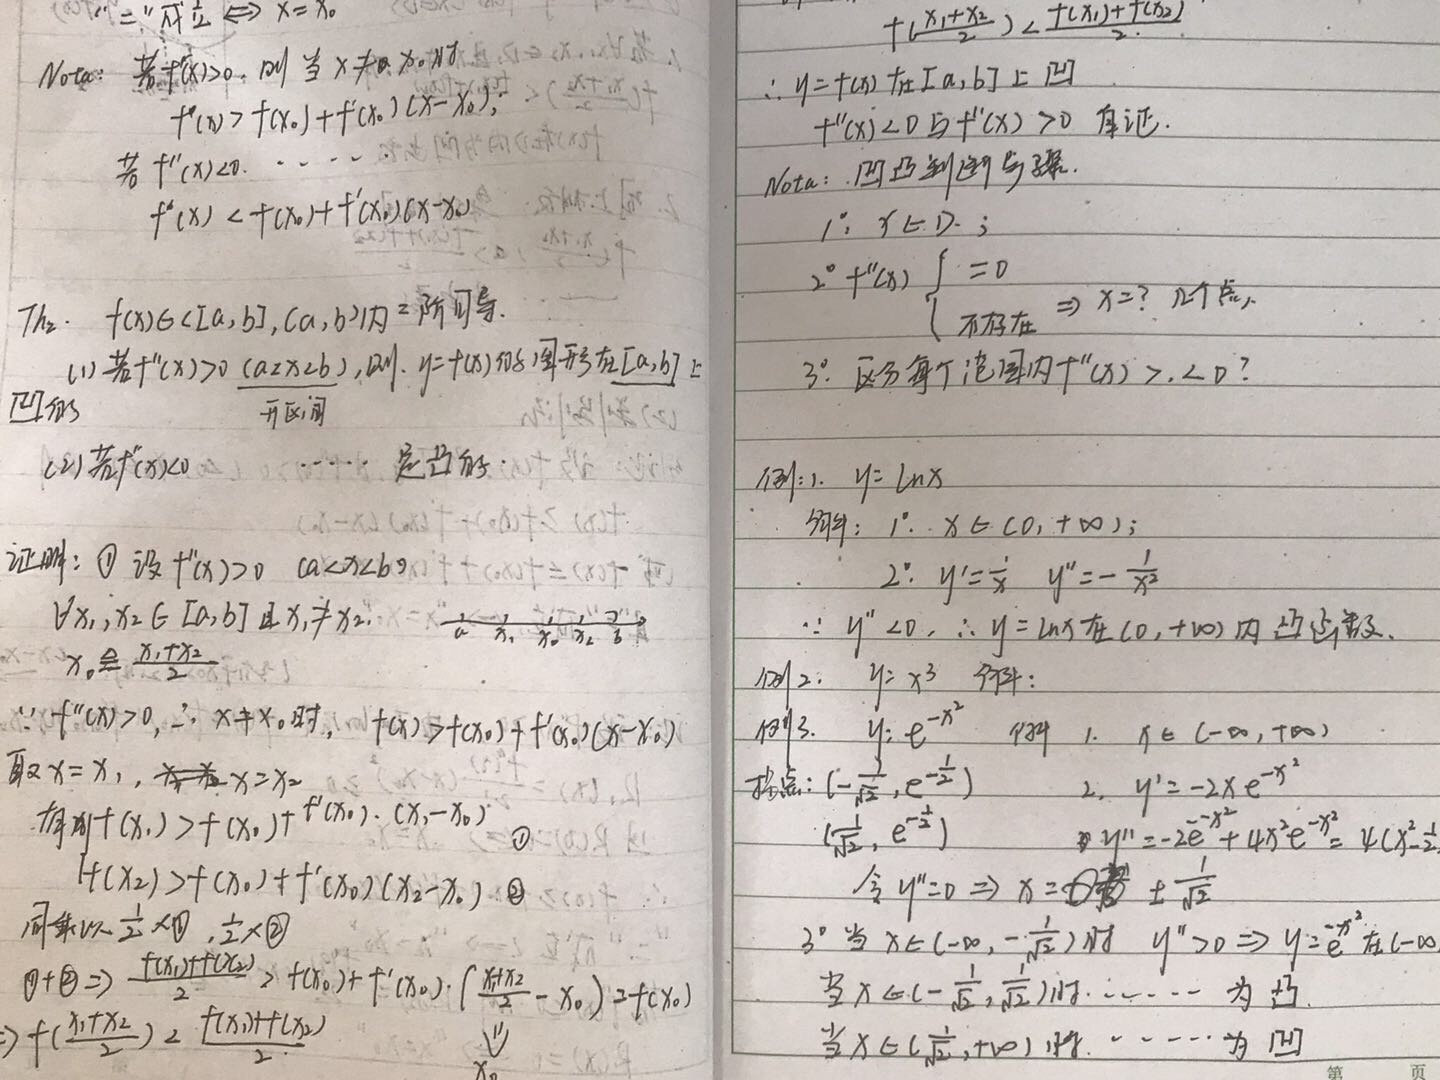 "="成立 ⟺ x=x₀
Nota: 若f''(x)>0, 则 当 x≠x₀时
f(x)>f(x₀)+f'(x₀)(x-x₀);
若 f''(x)<0. ·····
f(x)<f(x₀)+f'(x₀)(x-x₀)
Th₂. f(x)∈c[a,b], (a,b)内二阶可导.
(1) 若f''(x)>0 (a<x<b), 则 y=f(x)的图形在[a,b]上
开区间
凹的
(2) 若f''(x)<0 ······ 是凸的.
证明: ① 设 f''(x)>0 (a<x<b)
∀x₁, x₂∈[a,b]且x₁≠x₂. a x₁ x₀ x₂ b
x₀≜(x₁+x₂)/2
∵ f''(x)>0, ∴ x≠x₀时, f(x)>f(x₀)+f'(x₀)(x-x₀)
取x=x₁, x=x₂
有 f(x₁)>f(x₀)+f'(x₀)·(x₁-x₀) ①
f(x₂)>f(x₀)+f'(x₀)(x₂-x₀) ②
同乘以 1/2×①, 1/2×②
①+② ⇒ (f(x₁)+f(x₂))/2 > f(x₀)+f'(x₀)·((x₁+x₂)/2-x₀)=f(x₀)
⇒ f((x₁+x₂)/2)<(f(x₁)+f(x₂))/2
x₀
f((x₁+x₂)/2)<(f(x₁)+f(x₂))/2
∴ y=f(x)在[a,b]上凹
f''(x)<0与f''(x)>0 自证.
Nota: 凹凸判断步骤.
1°. x∈D. ;
2° f''(x) { =0
不存在 ⇒ x=? 几个点,
3°. 区分每个范围内f''(x)>,<0?
例:1. y=lnx
解: 1°. x∈(0,+∞);
2°. y'=1/x y''=-1/x²
∵ y''<0, ∴ y=lnx在(0,+∞)内凸函数.
例2. y=x³ 解:
例3. y=e^(-x²) 解 1. x∈(-∞,+∞)
拐点: (-1/√2, e^(-1/2)) 2. y'=-2xe^(-x²)
(1/√2, e^(-1/2)) y''=-2e^(-x²)+4x²e^(-x²)=4(x²-1/2
令 y''=0 ⇒ x=±1/√2
3° 当 x∈(-∞,-1/√2)时 y''>0 ⇒ y=e^(-x²)在(-∞
当 x∈(-1/√2,1/√2)时······为凸.
当 x∈(1/√2,+∞)时. ······为凹
第 页